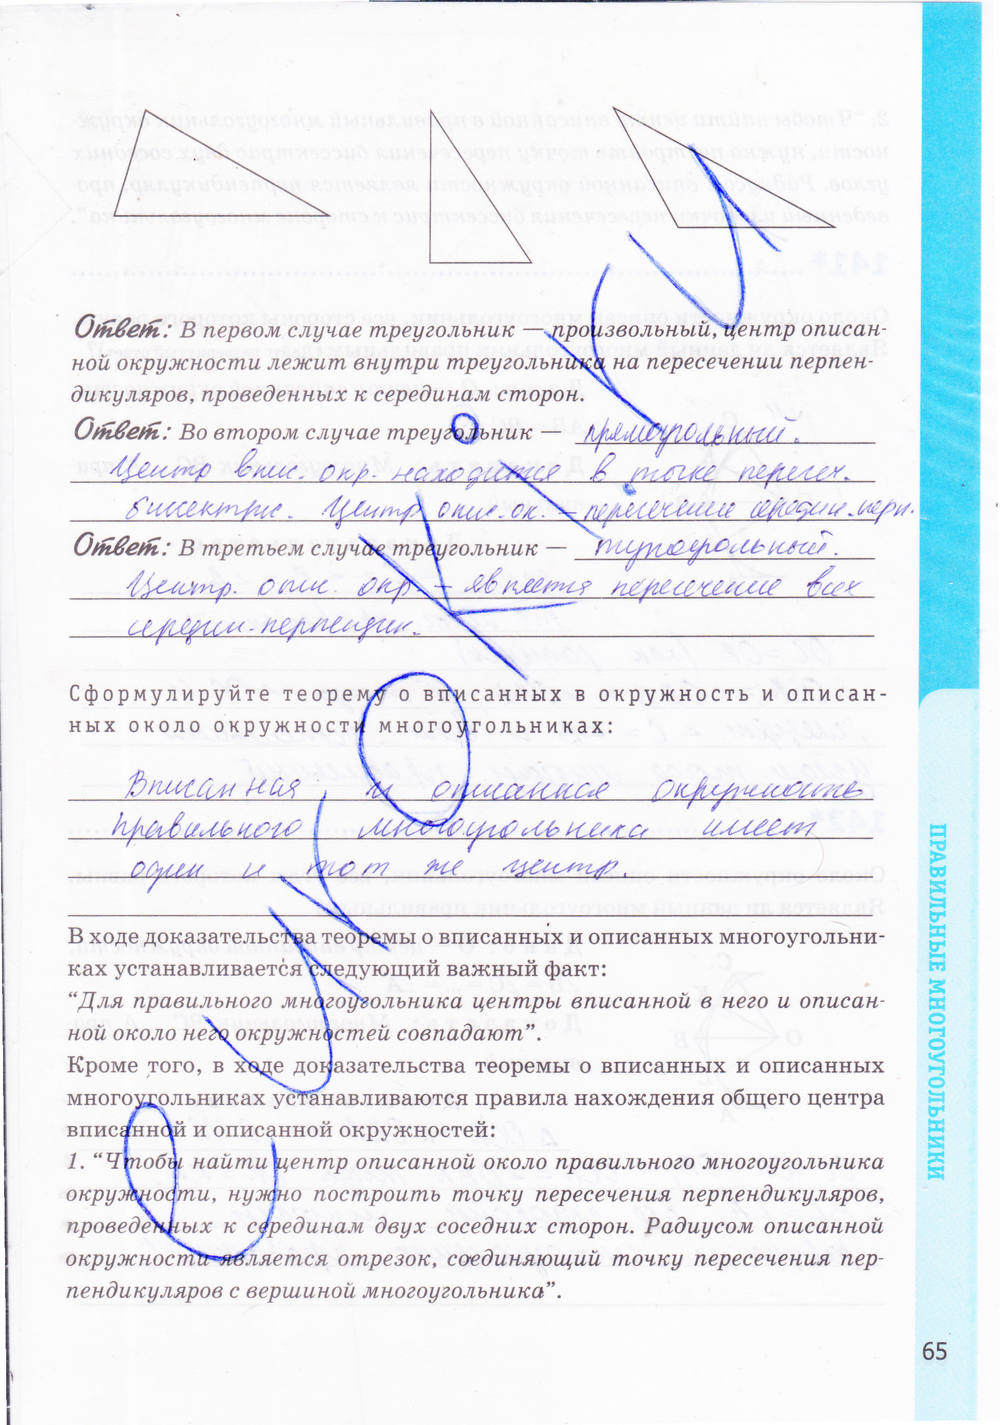 Ответ: В первом случае треугольник — произвольный, центр описан-
ной окружности лежит внутри треугольника на пересечении перпен-
дикуляров, проведенных к серединам сторон.
Ответ: Во втором случае треугольник — прямоугольный.
Центр впис. окр. находится в точке пересеч.
биссектрис. Центр опис. ок. — пересечение середин. перп.
Ответ: В третьем случае треугольник — тупоугольный.
Центр. опис. окр. — является пересечение всех
середин. перпендик.
Сформулируйте теорему о вписанных в окружность и описан-
ных около окружности многоугольниках:
Вписанная и описанная окружность
правильного многоугольника имеет
один и тот же центр.
В ходе доказательства теоремы о вписанных и описанных многоугольни-
ках устанавливается следующий важный факт:
“Для правильного многоугольника центры вписанной в него и описан-
ной около него окружностей совпадают”.
Кроме того, в ходе доказательства теоремы о вписанных и описанных
многоугольниках устанавливаются правила нахождения общего центра
вписанной и описанной окружностей:
1. “Чтобы найти центр описанной около правильного многоугольника
окружности, нужно построить точку пересечения перпендикуляров,
проведенных к серединам двух соседних сторон. Радиусом описанной
окружности является отрезок, соединяющий точку пересечения пер-
пендикуляров с вершиной многоугольника”.
ПРАВИЛЬНЫЕ МНОГОУГОЛЬНИКИ
65